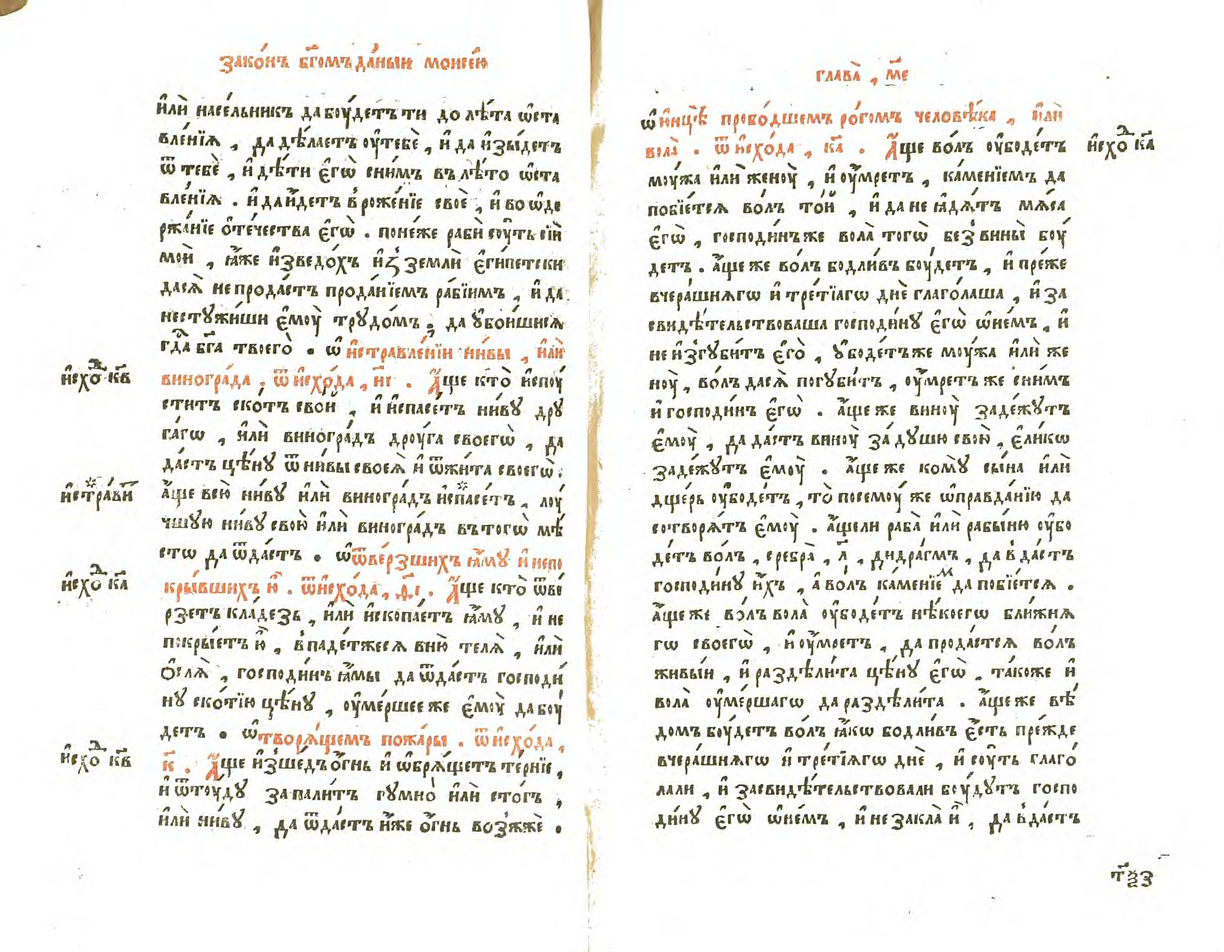 Зако́нъ бг҃омъ да́ный моисе́ю
и҆лѝ насе́льникъ да бꙋ́детъ ти до лѣ́та ѡ҆ста
вле́нїѧ , да дѣ́лаетъ оу҆ тебѐ , и҆ да и҆зы́детъ
ѿ тебѐ , и҆ дѣ́ти є҆гѡ̀ сни́мъ въ лѣ́то ѡ҆ста
вле́нїѧ . и҆ да и҆́детъ в роже́нїе своѐ , и҆ во ѡ҆де
ржа́нїе ѻ҆те́чества є҆гѡ̀ . поне́же рабѝ сꙋ́ть сїѝ
моѝ , ꙗ҆̀же и҆зведо́хъ и҆ꙁ землѝ є҆гипетски
да сѧ̀ не прода́стъ прода́нїемъ ра́бїимъ , и҆ да
не стꙋжи́ши є҆мꙋ̀ трꙋдо́мъ , да ᲂу҆бои́шисѧ
гдⷭ҇а бг҃а твоего̀ . ѡ҆ и҆стравле́нїи ни́вы , и҆лѝ
виногра́да , ѿ и҆схо́да , н҃і . А҆́ще кто̀ и҆спꙋ
ститъ ско́тъ сво́й , и҆ и҆спасе́тъ ни́вꙋ дрꙋ
га́гѡ , и҆лѝ виногра́дъ дрꙋ́га своегѡ̀ , да
да́стъ цѣ́нꙋ ѿ ни́вы своеѧ̀ и҆ ѿ жи́та своегѡ̀ .
и҆схоⷣ к҃в
а҆́ще всю̀ ни́вꙋ и҆лѝ виногра́дъ и҆спасе́тъ , лꙋ́
чшꙋю ни́вꙋ свою̀ и҆лѝ виногра́дъ въ тогѡ̀ мѣ́
и҆стра́вѝ
сто да ѿда́стъ . ѡ҆ ѿве́рзшихъ ꙗ҆́мꙋ и҆ непо
кры́вшихъ ю҆̀ . ѿ и҆схо́да , д҃і . А҆́ще кто̀ ѿве́
рзетъ кла́дезь , и҆лѝ и҆скопа́етъ ꙗ҆́мꙋ , и҆ не
покры́етъ ю҆̀ , впаде́тжесѧ вню̀ телѧ̀ , и҆лѝ
ѻ҆слѧ̀ , господи́нъ ꙗ҆́мы да ѿда́стъ господи́
нꙋ ско́тїю цѣ́нꙋ , оу҆ме́ршее же є҆мꙋ̀ да бꙋ́
детъ . ѡ҆ творѧ́щемъ пожа́ры . ѿ и҆схо́да ,
к҃ . А҆́ще и҆зше́дъ ѻ҆́гнь и҆ ѡ҆брѧ́щетъ те́рнїе ,
и҆ ѿтꙋ́дꙋ запали́тъ гꙋмно̀ и҆лѝ сто́гъ ,
и҆лѝ ни́вꙋ , да ѿда́стъ и҆́же ѻ҆́гнь возжжѐ .
и҆схоⷣ к҃а
и҆схоⷣ к҃в
глава̀ , м҃е
ѡ҆ ю҆нцѣ̀ пробо́дшемъ ро́гомъ человѣ́ка , и҆лѝ
вола̀ . ѿ и҆схо́да , к҃а . А҆́ще во́лъ оу҆боде́тъ
и҆схоⷣ к҃а
мꙋ́жа и҆лѝ женꙋ̀ , и҆ оу҆́мретъ , ка́менїемъ да
побїе́тсѧ во́лъ то́й , и҆ да не ꙗ҆дѧ́тъ мѧ́са
є҆гѡ̀ , господи́нъ же вола̀ тогѡ̀ без̾ вины̀ бꙋ́
детъ . а҆́ще же во́лъ бодли́въ бꙋ́детъ , и҆ пре́же
вчера́шнѧгѡ и҆ тре́тїагѡ днѐ глаго́лаша , и҆ за
свидѣ́тельствоваша господи́нꙋ є҆гѡ̀ ѡ҆ не́мъ , и҆
не и҆згꙋби́тъ є҆го̀ , ᲂу҆боде́тъ же мꙋ́жа и҆лѝ же
нꙋ̀ , во́лъ да сѧ̀ погꙋби́тъ , оу҆́мретъ же сни́мъ
и҆ господи́нъ є҆гѡ̀ . а҆́ще же винꙋ̀ задежꙋ́тъ
є҆мꙋ̀ , да да́стъ винꙋ̀ за дꙋ́шю свою̀ , є҆ли́кѡ
задежꙋ́тъ є҆мꙋ̀ . а҆́ще же комꙋ̀ сы́на и҆лѝ
дще́рь оу҆боде́тъ , то̀ по семꙋ́ же ѡ҆правда́нїю да
сотворѧ́тъ є҆мꙋ̀ . а҆́ще ли раба̀ и҆лѝ рабы́ню оу҆бо
де́тъ во́лъ , сребра̀ , л҃ , дидра́гмъ , да вда́стъ
господи́нꙋ и҆́хъ , а҆ во́лъ ка́менїеⷨ да побїе́тсѧ .
а҆́ще же во́лъ вола̀ оу҆боде́тъ нѣ́коегѡ бли́жнѧ
гѡ своегѡ̀ , и҆ оу҆́мретъ , да прода́стсѧ во́лъ
живы́й , и҆ раздѣли́та цѣ́нꙋ є҆гѡ̀ . та́коже и҆
вола̀ оу҆ме́ршагѡ да раздѣли́та . а҆́ще же вѣ́
домъ бꙋ́детъ во́лъ ꙗ҆́кѡ бодли́въ є҆́сть пре́жде
вчера́шнѧгѡ и҆ тре́тїѧгѡ днѐ , и҆ сꙋ́ть глаго́
лали , и҆ засвидѣ́тельствовали бꙋ́дꙋтъ госпо
ди́нꙋ є҆гѡ̀ ѡ҆ не́мъ , и҆ не закла̀ и҆̀ , да вда́стъ